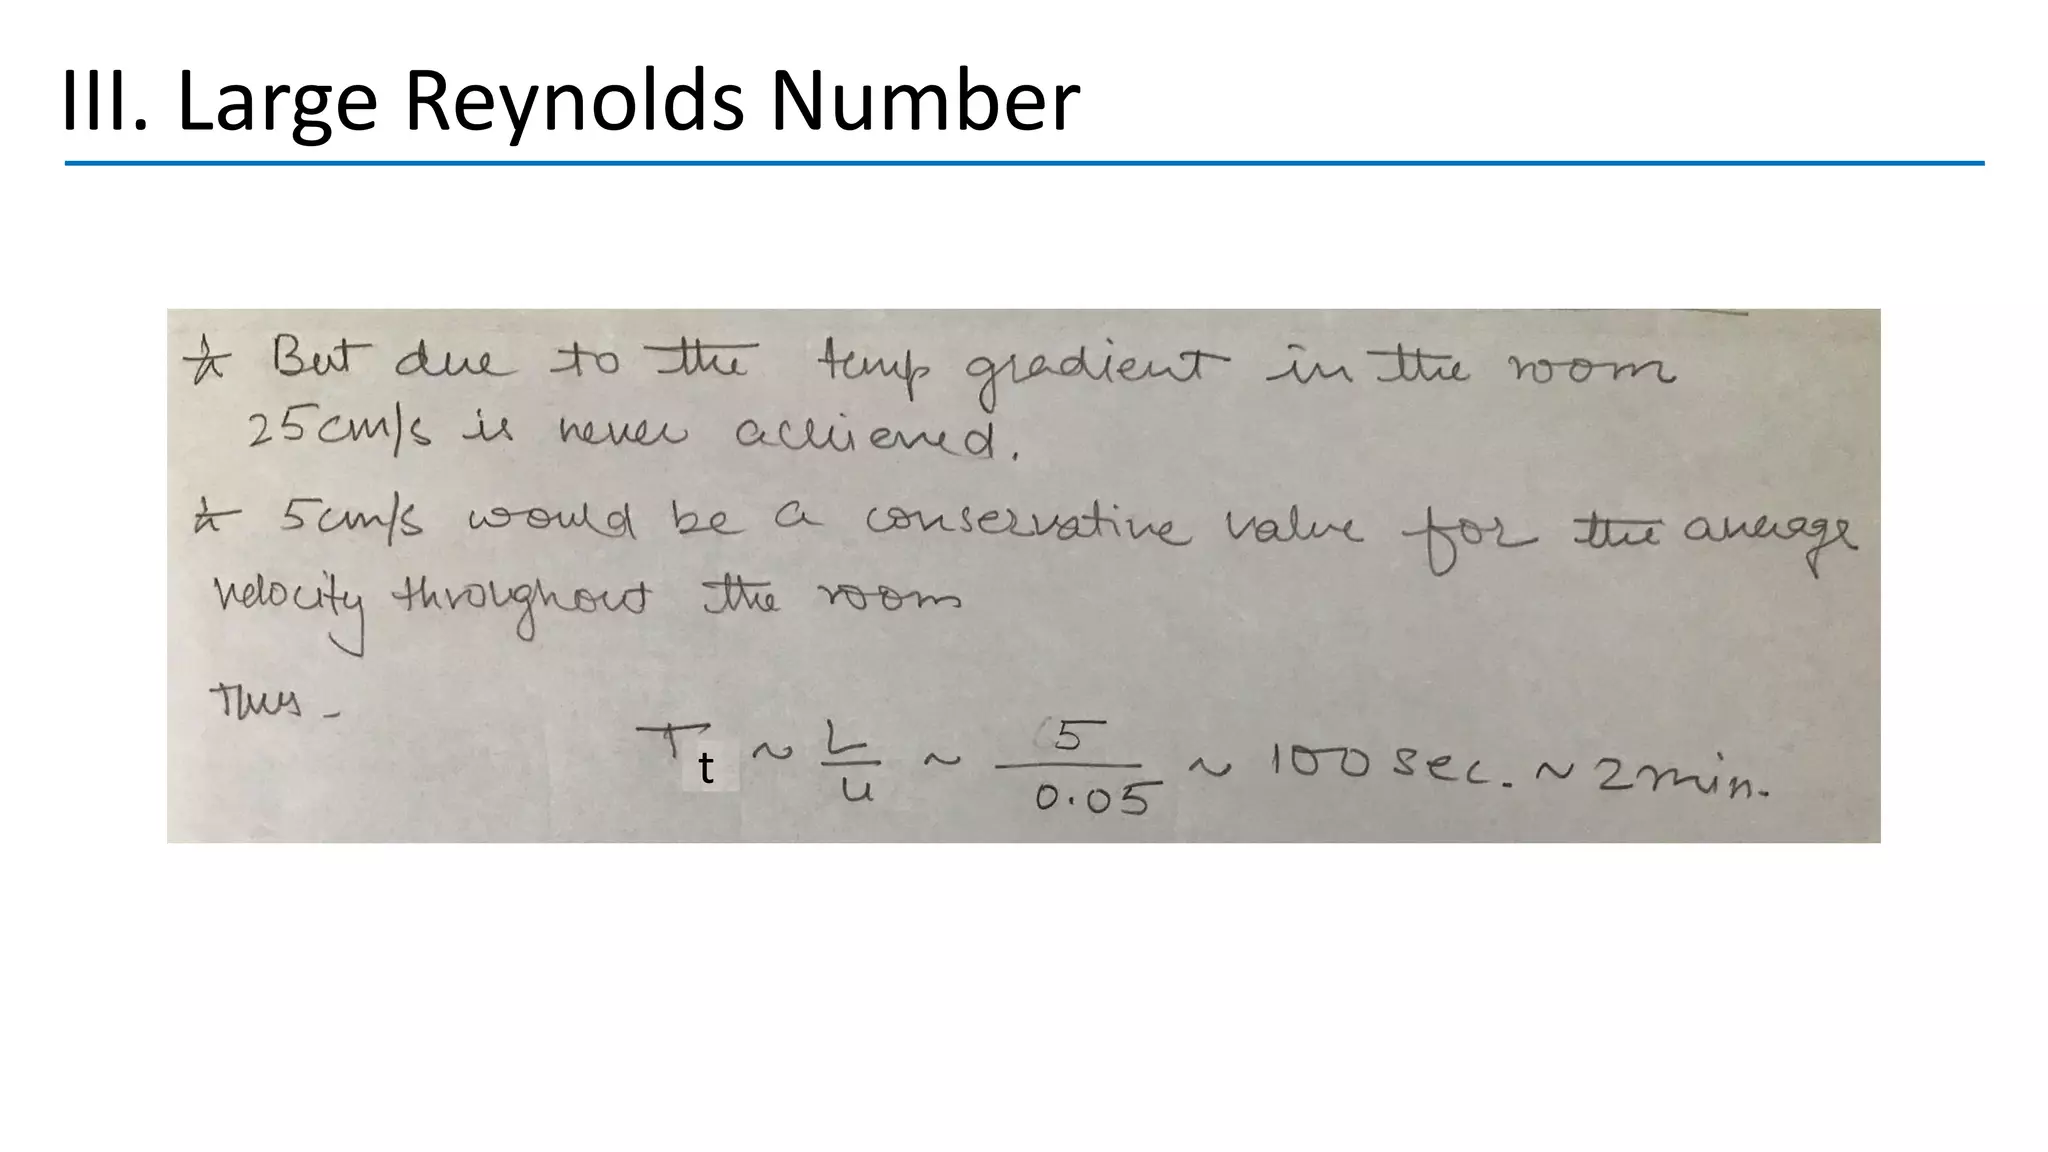 III. Large Reynolds Number
* But due to the temp gradient in the room
25cm/s is never achieved.
* 5cm/s would be a conservative value for the average
velocity throughout the room
Thus -
T_t ~ L/u ~ 5/0.05 ~ 100 sec. ~ 2 min.